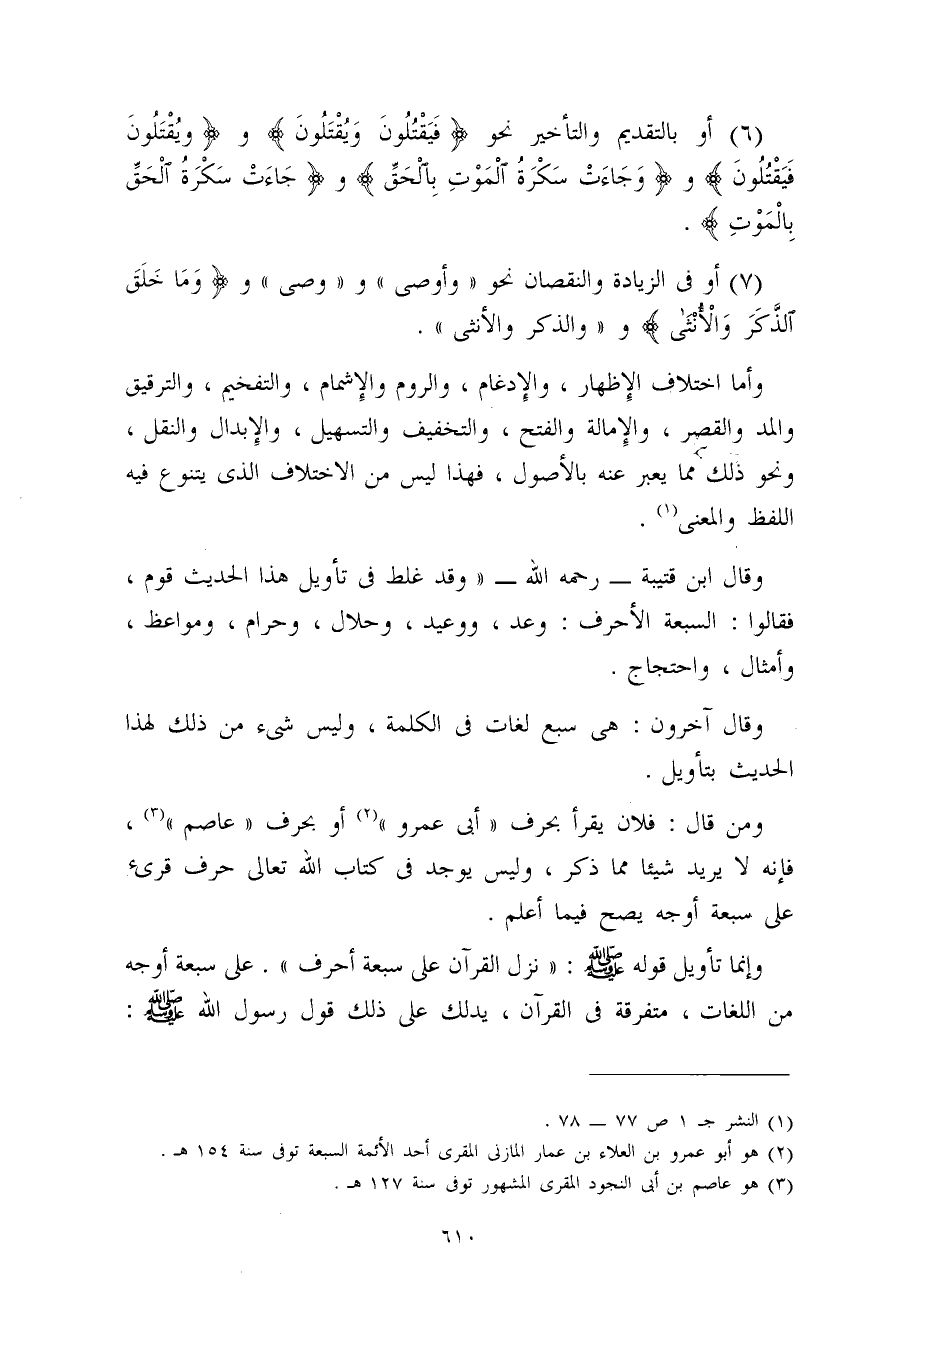 (٦) أو بالتقديم والتأخير نحو ﴿ فَيَقْتُلُونَ وَيُقْتَلُونَ ﴾ و ﴿ ويُقْتَلُونَ
فَيَقْتُلُونَ ﴾ و ﴿ وَجَاءَتْ سَكْرَةُ ٱلْمَوْتِ بِٱلْحَقِّ ﴾ و ﴿ جَاءَتْ سَكْرَةُ ٱلْحَقِّ
بِالْمَوْتِ ﴾ .
(٧) أو فى الزيادة والنقصان نحو « وأوصى » و « وصى » و ﴿ وَمَا خَلَقَ
ٱلذَّكَرَ وَالْأُنْثَىٰ ﴾ و « والذكر والأنثى » .
وأما اختلاف الإظهار ، والإدغام ، والروم والإشمام ، والتفخيم ، والترقيق
والمد والقصر ، والإمالة والفتح ، والتخفيف والتسهيل ، والإبدال والنقل ،
ونحو ذلك مما يعبر عنه بالأصول ، فهذا ليس من الاختلاف الذى يتنوع فيه
اللفظ والمعنى(١) .
وقال ابن قتيبة ــ رحمه الله ــ « وقد غلط فى تأويل هذا الحديث قوم ،
فقالوا : السبعة الأحرف : وعد ، ووعيد ، وحلال ، وحرام ، ومواعظ ،
وأمثال ، واحتجاج .
وقال آخرون : هى سبع لغات فى الكلمة ، وليس شىء من ذلك لهذا
الحديث بتأويل .
ومن قال : فلان يقرأ بحرف « أبى عمرو »(٢) أو بحرف « عاصم »(٣) ،
فإنه لا يريد شيئا مما ذكر ، وليس يوجد فى كتاب الله تعالى حرف قرىء
على سبعة أوجه يصح فيما أعلم .
وإنما تأويل قوله ﷺ : « نزل القرآن على سبعة أحرف » . على سبعة أوجه
من اللغات ، متفرقة فى القرآن ، يدلك على ذلك قول رسول الله ﷺ :
(١) النشر جـ ١ ص ٧٧ ــ ٧٨ .
(٢) هو أبو عمرو بن العلاء بن عمار المازنى المقرى أحد الأئمة السبعة توفى سنة ١٥٤ هـ .
(٣) هو عاصم بن أبى النجود المقرى المشهور توفى سنة ١٢٧ هـ .
٦١٠